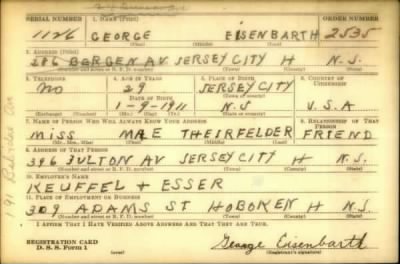 SERIAL NUMBER 1. NAME (Print) ORDER NUMBER
1126 GEORGE EISENBARTH 2535
(First) (Middle) (Last)
2. ADDRESS (Print)
286 BERGEN AV JERSEY CITY H N.J.
(Number and street or R. F. D. number) (Town) (County) (State)
3. TELEPHONE 4. AGE IN YEARS 5. PLACE OF BIRTH 6. COUNTRY OF CITIZENSHIP
NO 29 JERSEY CITY
DATE OF BIRTH (Town or county)
1-9-1911 N.J U.S.A
(Exchange) (Number) (Mo.) (Day) (Yr.) (State or country)
7. NAME OF PERSON WHO WILL ALWAYS KNOW YOUR ADDRESS 8. RELATIONSHIP OF THAT PERSON
MISS MAE THEIRFELDER FRIEND
(Mr., Mrs., Miss) (First) (Middle) (Last)
9. ADDRESS OF THAT PERSON
396 FULTON AV JERSEY CITY H N.J.
(Number and street or R. F. D. number) (Town) (County) (State)
10. EMPLOYER'S NAME
KEUFFEL + ESSER
11. PLACE OF EMPLOYMENT OR BUSINESS
309 ADAMS ST HOBOKEN H N.J.
(Number and street or R. F. D. number) (Town) (County) (State)
I AFFIRM THAT I HAVE VERIFIED ABOVE ANSWERS AND THAT THEY ARE TRUE.
REGISTRATION CARD
D. S. S. Form 1 (over) George Eisenbarth
(Registrant's signature)
191